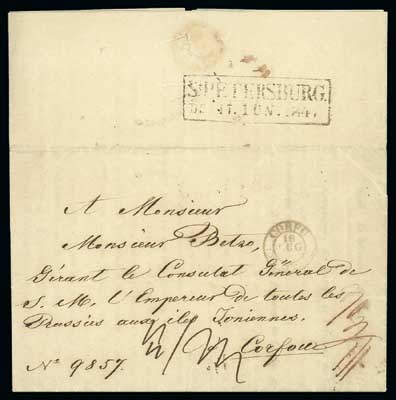 St PETERSBURG.
17. IUN. 1847
A Monsieur
Monsieur Betzo,
CORFU
Gérant le Consulat Gn̲al de
S. M. l'Empereur de toutes les
Russies aux iles Ioniennes.
Corfou
No 9857.